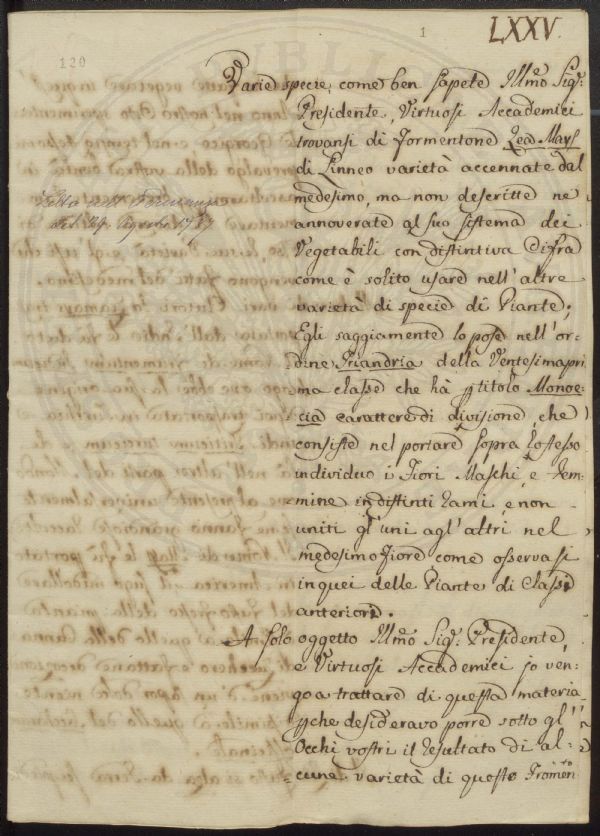 LXXV.
1
120
Varie specie, come ben sapete Illmo Sigr
Presidente, Virtuosi Accademici
trovansi di formentone Zea Mays
di Linneo varietà accennate dal
medesimo, ma non descritte ne
annoverate al suo sistema dei
Vegetabili con distintiva difra
come è solito usare nell'altre
varietà di specie di Piante;
Egli saggiamente lo pose nell'or=
dine Triandria della Ventesimapri
ma classe che hà titolo Monoe=
cia carattere di divisione, che
consiste nel portare sopra lo stesso
individuo i Fiori Maschi, e Fem=
mine in distinti rami, e non
uniti gl'uni agl'altri nel
medesimo fiore come osservasi
in quei delle Piante di Classi
anteriori.
A solo oggetto Illmo Sigr Presidente,
e Virtuosi Accademici io ven=
go a trattare di questa materia
che desideravo porre sotto gl'
Occhi vostri il resultato di al=
cune varietà di questo Fromen
Letta nell'
del 29 Agosto 17